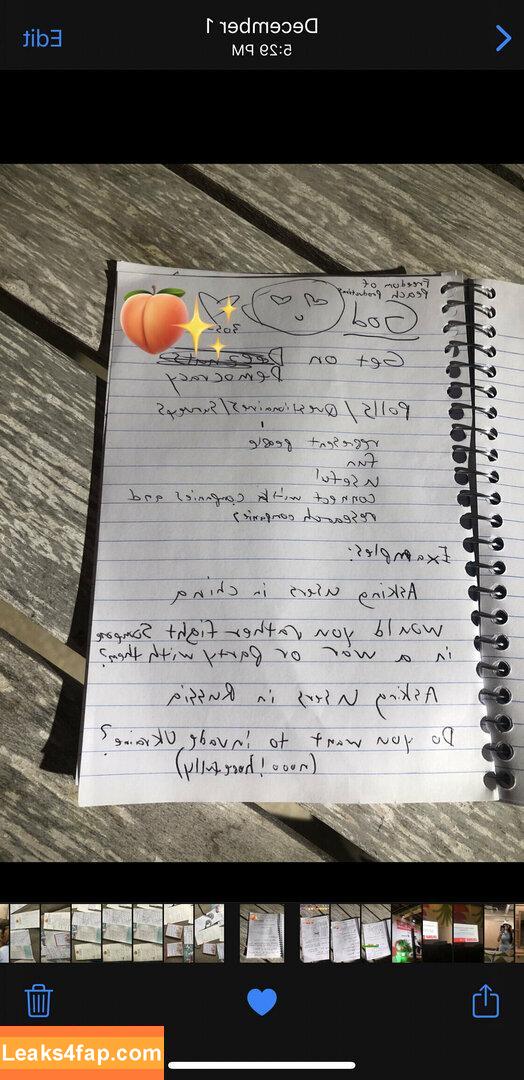 December 1
5:29 PM
Edit
Freedom of
Peach Productions
God
305
Get on
Democracy
Polls / Questionaires / Surveys
represent people
fun
useful
connect with companies and
research companies
Examples:
Asking users in china
would you rather fight someone
in a war or party with them?
Asking users in Russia
Do you want to invade Ukraine?
(nooo! hopefully)
Leaks4fap.com